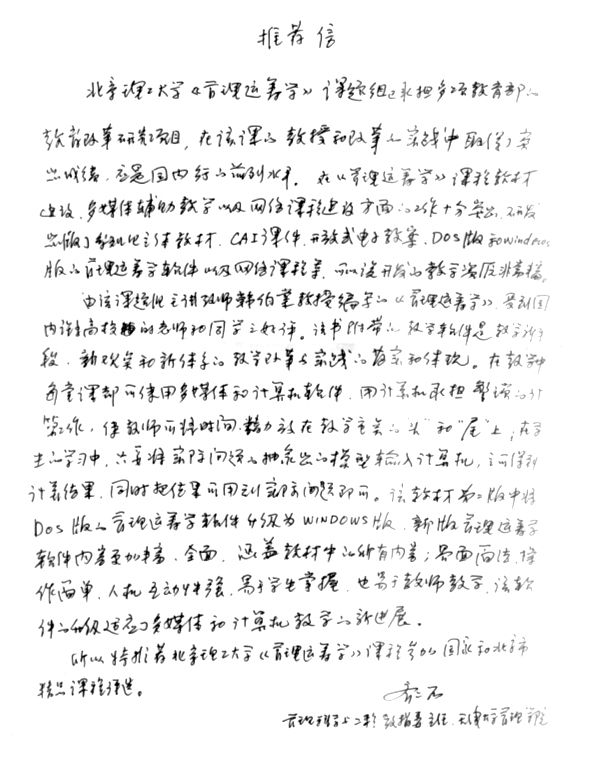 推荐信
北京理工大学《管理运筹学》课题组已承担多项教育部的
教育改革研究项目，在该课的教授和改革的实践中取得了突
出成绩，应是国内行的前列水平。在《管理运筹学》课程教材
建设、多媒体辅助教学以及网络课程建设方面的工作十分突出，研发
出版了系列化立体教材、CAI课件、开放式电子教案、DOS版和windows
版的管理运筹学软件以及网络课程等，可以说开发的教学资源非常丰富。
由该课题组主讲教师韩伯棠教授编写的《管理运筹学》，受到国
内许多高校的老师和同学之好评。该书附带的教学软件是教学新手
段、新观念和新体系的教学改革与实践的探索和体现。在教学中
每堂课都可使用多媒体和计算机软件，用计算机承担繁琐的计
算工作，使教师可将时间、精力放在教学重点的"头"和"尾"上；在学
生的学习中，只要将实际问题的抽象出的模型输入计算机，立可得到
计算结果，同时把结果可用到实际问题即可。该教材第二版中将
DOS版的管理运筹学软件升级为WINDOWS版，新版管理运筹学
软件内容更加丰富、全面，涵盖教材中的所有内容；界面简洁，操
作简单，人机互动性强，易于学生掌握，也易于教师教学，该软
件的升级适应了多媒体和计算机教学的新进展。
所以特推荐北京理工大学《管理运筹学》课程参加国家和北京市
精品课程评选。
齐二石
管理科学与工程教指委主任、天津大学管理学院